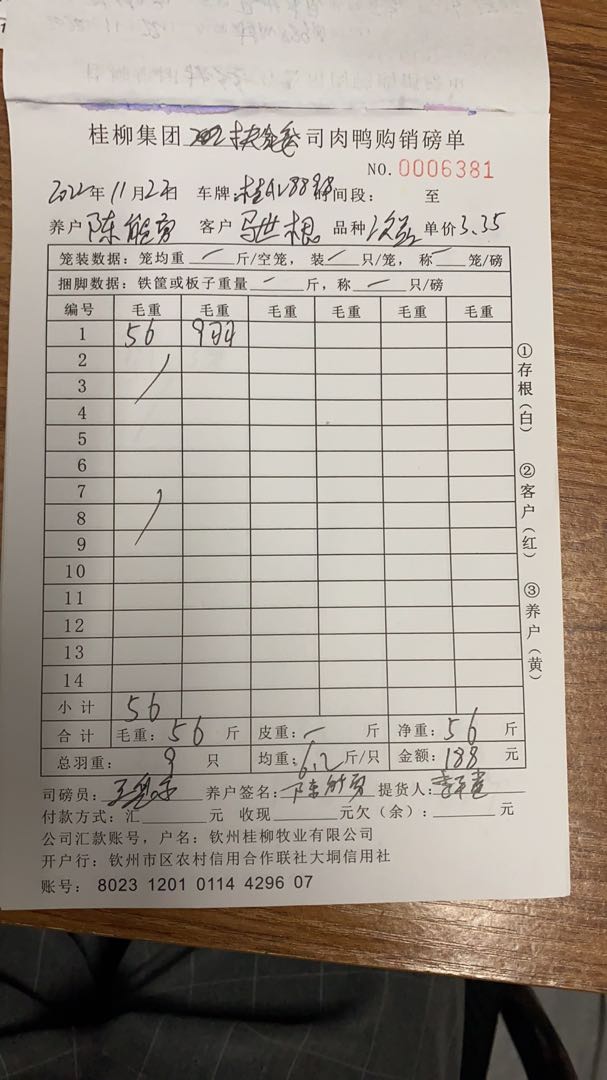 桂柳集团 司肉鸭购销磅单
NO.0006381
2022年11月22日 车牌:桂 时间段: 至
养户 陈能勇 客户 马世根 品种 单价3.35
笼装数据:笼均重 一 斤/空笼,装 一 只/笼,称 一 笼/磅
捆脚数据:铁筐或板子重量 一 斤,称 一 只/磅
编号 毛重 毛重 毛重 毛重 毛重 毛重
1 56 9羽
2
3
4
5
6
7
8
9
10
11
12
13
14
小计 56
合计 毛重:56 斤 皮重:一 斤 净重:56 斤
总羽重: 9 只 均重:6.2斤/只 金额:188 元
司磅员: 养户签名:陈能勇 提货人:
付款方式:汇 元 收现 元欠(余): 元
公司汇款账号,户名:钦州桂柳牧业有限公司
开户行:钦州市区农村信用合作联社大垌信用社
账号:8023 1201 0114 4296 07
①存根(白)
②客户(红)
③养户(黄)